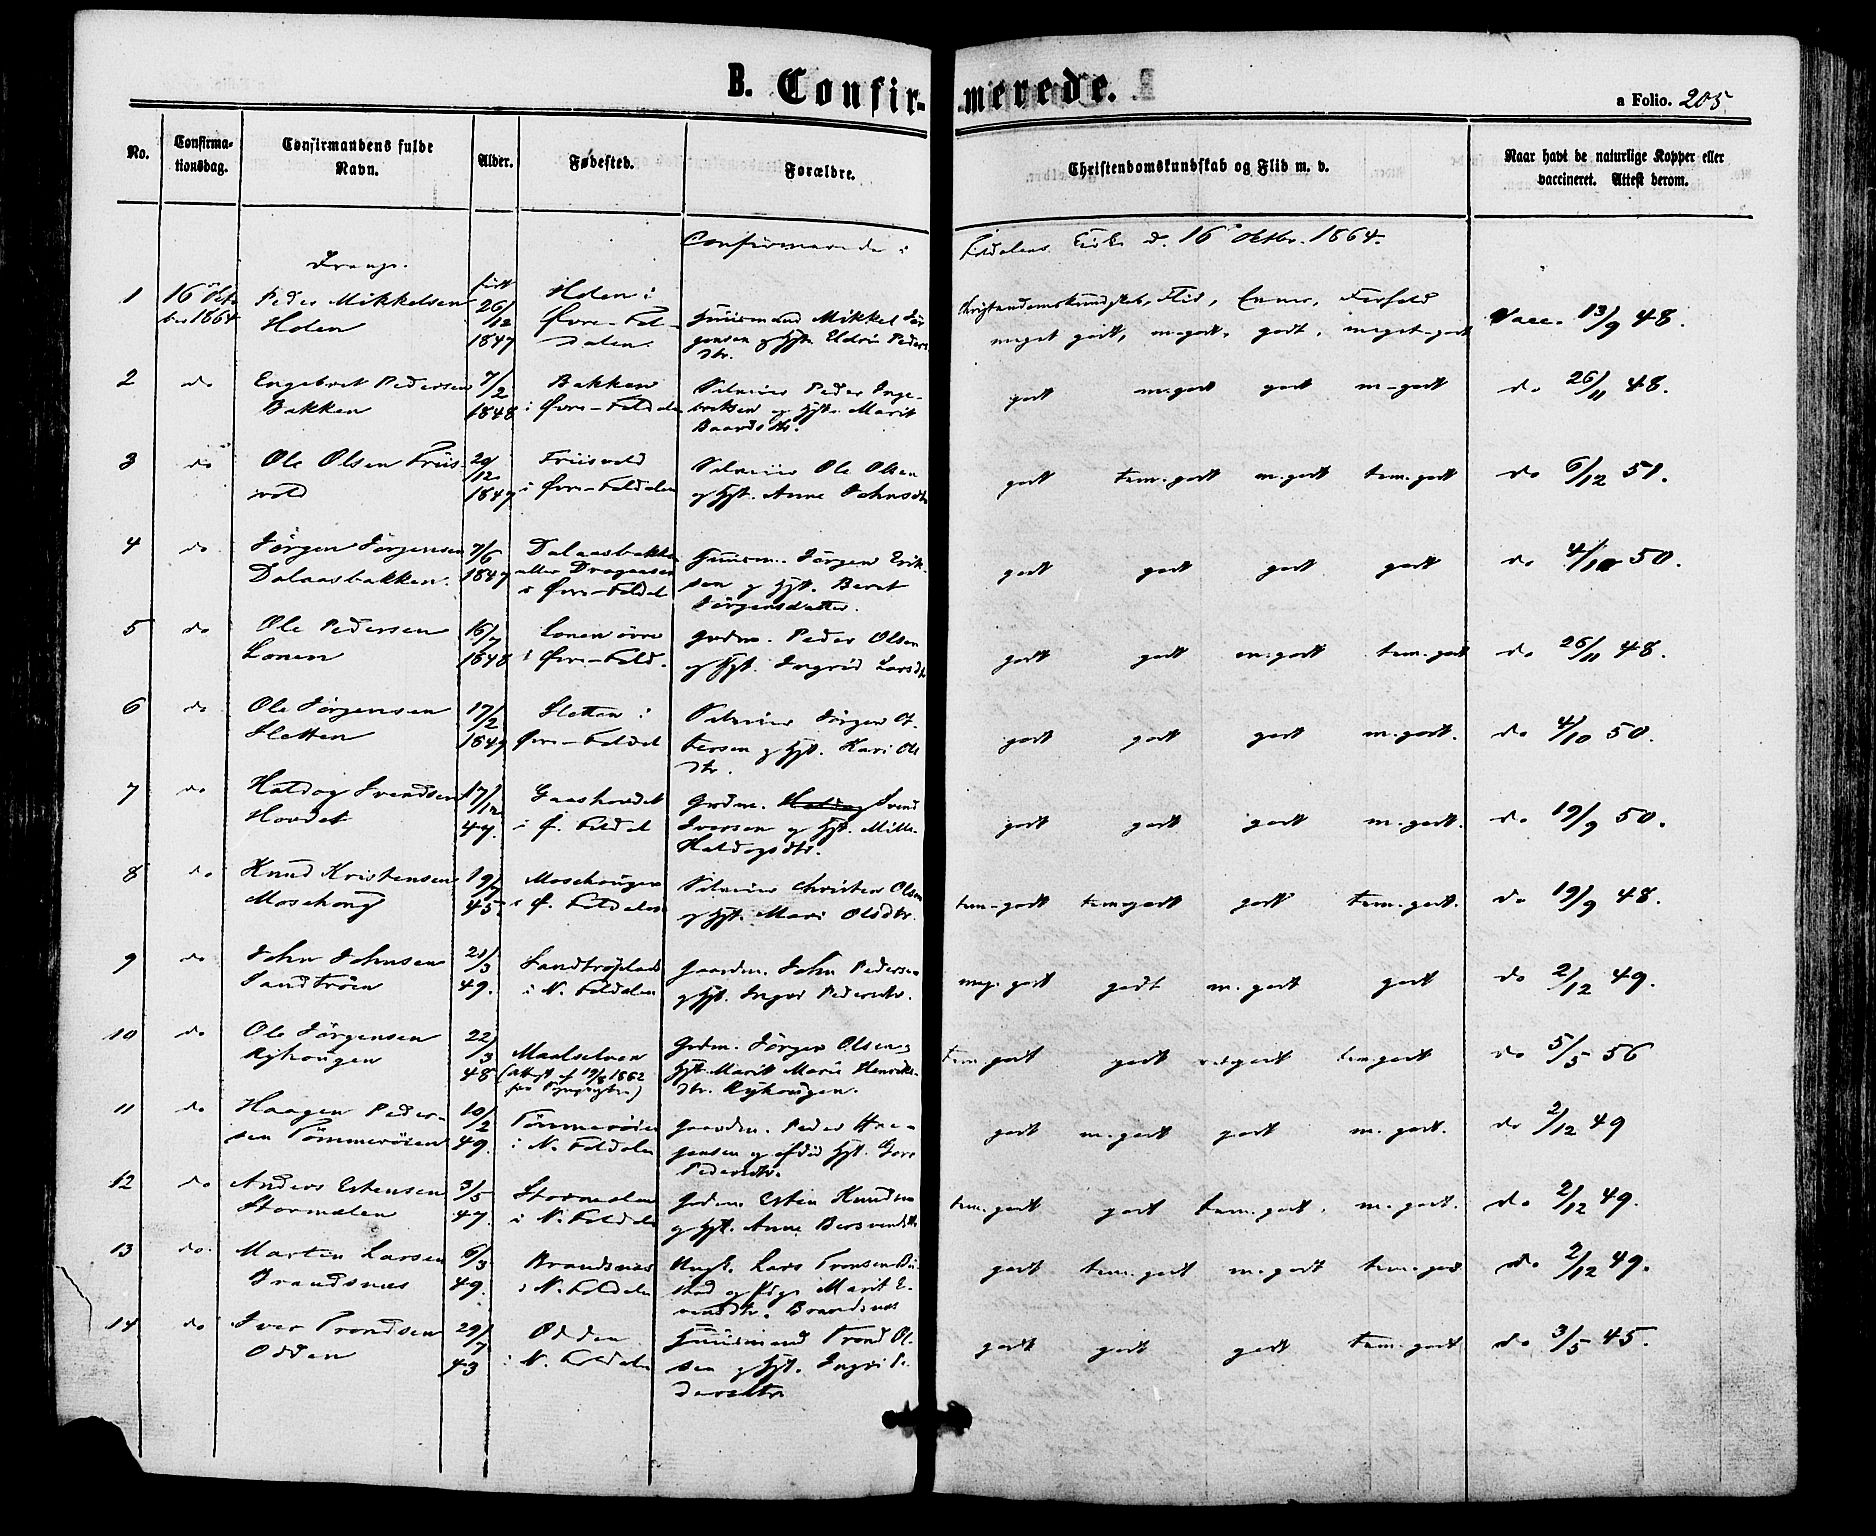 B. Confir-
merede.
a Folio. 205
No.
Confirma-
tionsdag.
Confirmandens fulde
Navn.
Alder.
Fødested.
Forældre.
Christendomskundskab og Flid m. v.
Naar havt de naturlige Kopper eller
vaccineret. Attest derom.
Confirmerede i
Foldalens Kirke d. 16de Oktbr. 1864.
Drenge.
1 16 Octo
ber 1864
Peder Mikkelsen
Holen
født
26/12
1847
Holen i
Øvre-Fol-
dalen
Huusmand Mikkel Jør
gensen og Hst. Eldri Peders
dtr.
Christendomskundskab, Flid, Evner, Forhold
meget godt, m. godt, godt, meget-godt
Vacc. 13/9 48.
2 do
Engebret Pedersen
Bakken
7/2
1848
Bakken
i Øvre-Foldalen
Selveier Peder Inge-
brektsen og Hst. Marit
Baardsdtr.
godt m-godt godt m-godt
do 26/11 48.
3 do
Ole Olsen Friis-
vold
20/12
1847
Friisvold
i Øvre-Foldalen
Selveier Ole Olsen
og Hst. Anne Johnsdtr
godt tem. godt m. godt tem. godt
do 6/12 51.
4 do
Jørgen Jørgensen
Dalaasbakken.
7/6
1847
Dalaasbakken
eller Dragaasen
i Øvre-Foldal
Huusm. Jørgen Erik-
sen og Hst. Beret
Jørgensdatter.
godt godt godt godt
do 4/10 50.
5 do
Ole Pedersen
Lonen
16/7
1848
Lonen øvre
i Øvre-Fold.
Grdm. Peder Olsen
og Hst. Ingrid Larsdtr
godt godt m. godt tem. godt
do 26/11 48.
6 do
Ole Jørgensen
Sletten
17/2
1849
Sletten i
Øvre-Foldal
Selveier Jørgen Ot-
tersen og Hst. Kari Ols
dtr.
godt godt godt m. godt.
do 4/10 50.
7 do
Haldog Svendsen
Hovdet
17/12
47.
Gaashovdet
i Ø. Foldal
Grdm. Haldog Svend
Iversen og Hst. Mille
Haldogsdtr.
godt godt godt m. godt.
do 19/9 50.
8 do
Knud Kristensen
Mosehoug
19/7
45.
Mosehougen
i Ø. Foldalen
Selveier Christen Olsen
og Hst. Mari Olsdtr.
tem-godt temgodt godt tem. godt.
do 19/9 48.
9 do
John Johnsen
Sandtrøen
21/3
49.
i N. Foldalen
Gaardm. John Pedersen
og Hst. Inger Pedersdtr.
meg. godt godt m. godt godt
do 2/12 49.
10 do
Ole Jørgensen
Ryhougen
22/3
48
Maalselven
(Attest af 19/8 1862
Grdm. Jørgen Olsen og
Hst. Marit Marie Henriks-
dtr. Ryhougen.
tem. godt godt godt tem. godt
do 5/5 56
11 do
Haagen Peder-
sen Tømmerøien
10/2
49.
Tømmerøien
i N. Foldalen
Gaardm. Peder Haa-
gensen og afdød Hst. Goro
Pedersdtr.
godt m. godt godt m. godt.
do 2/12 49
12 do
Anders Estensen
Stormælen
3/5
47.
Stormælen
i N. Foldalen
Grdm. Esten Knudsen
og Hst. Anne Bersvendsdtr
tem. godt godt tem. godt. m. godt.
do 2/12 49.
13 do.
Morten Larsen
Brandsnæs
6/3
49.
Brandsnæs
i N. Foldalen
Ungk. Lars Tronsen Bu-
stad og Pige Marit E-
vensdtr. Brandsnæs
godt tem. godt m. godt tem. godt
do 2/12 49.
14 do
Iver Trondsen
Odden
29/7
43
Odden
i N. Foldalen
Huusmand Trond Ol-
sen og Hst. Ingri Pe-
dersdtr
godt godt godt tem. godt
do 3/5 45.